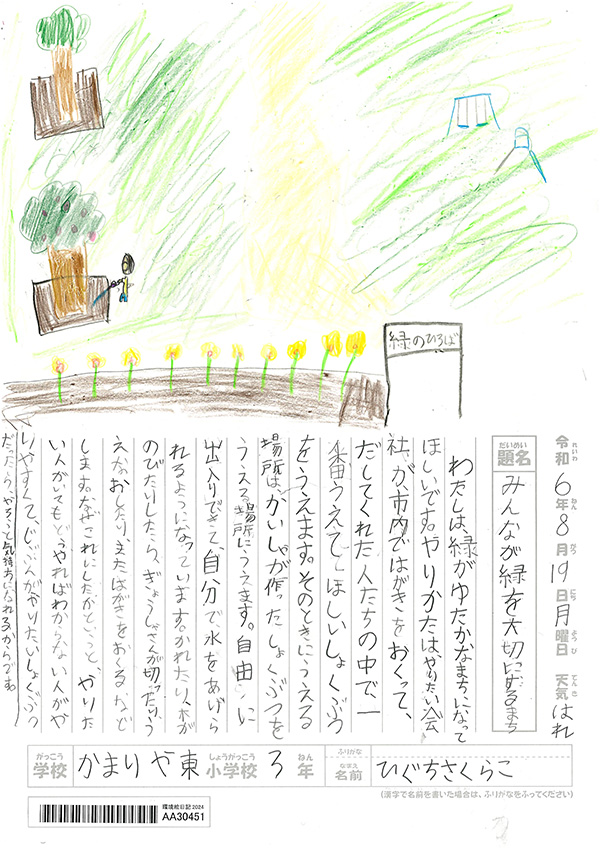 緑のひろば
令和6年8月19日月曜日 天気 はれ
れいわ ねん がつ にち ようび てんき
だいめい
題名
みんなが緑を大切にするまち
わたしは、緑がゆたかなまちになって
ほしいです。やりかたは、やりたい会
社が、市内ではがきをおくって、
だしてくれた人たちの中で、一
番うえてほしいしょくぶつ
をうえます。そのときにうえる
場所は、かいしゃが作ったしょくぶつを
うえる場所にうえます。自由に
出入りできて、自分で水をあげら
れるようになっています。かれたり、木が
のびたりしたら、ぎょうしゃさんが切ったり、う
えなおしたり、またはがきをおくるなど
します。なぜこれにしたかというと、やりた
い人がいてもどうやればわからない人がや
りやすくて、じぶんがやりたいしょくぶつ
だったら、やろうと気持ちになれるからです。
がっこう
学校 かまりや東 小学校 3年
しょうがっこう ねん
ふりがな
なまえ
名前 ひぐちさくらこ
(漢字で名前を書いた場合は、ふりがなをふってください)
環境絵日記2024
AA30451